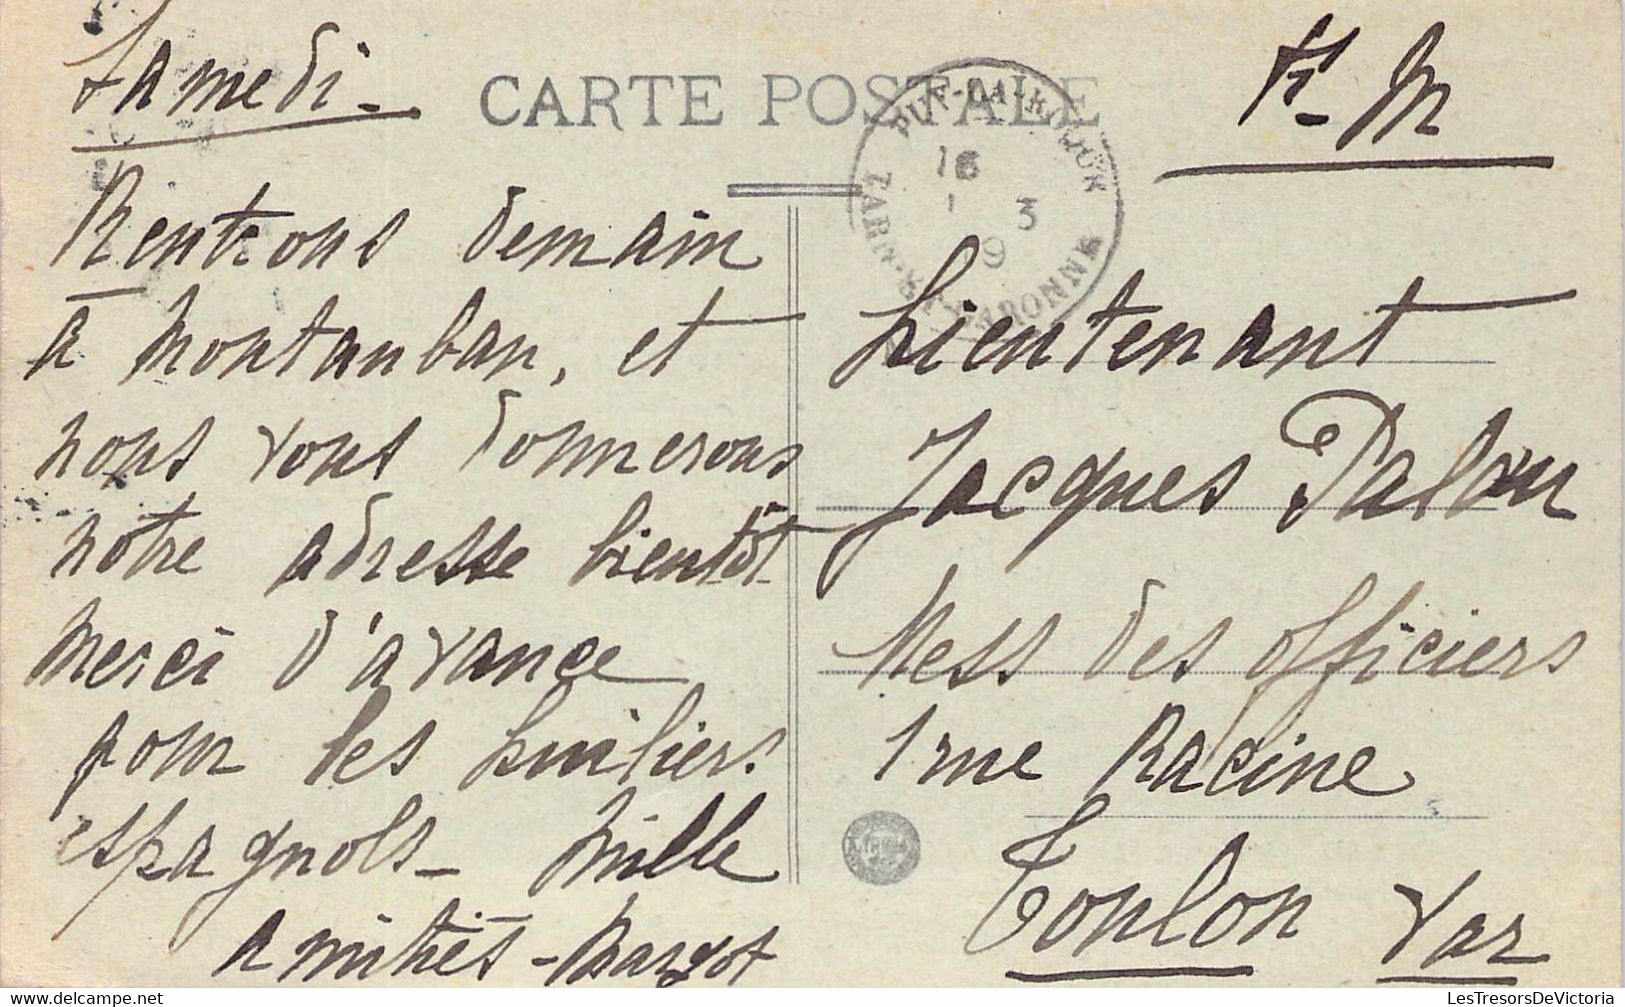 Samedi -
CARTE POSTALE
F - M
PUY-LA-ROQUE
16
1 3
9
TARN-ET-GARONNE
Rentrons demain
à Montauban, et
nous vous donnerons
notre adresse bientôt
merci d'avance
pour les huiliers
espagnols - Mille
amitiés - Margot
Lieutenant
Jacques Palau
Mess des officiers
1 rue Racine
Toulon Var
www.delcampe.net
LesTresorsDeVictoria